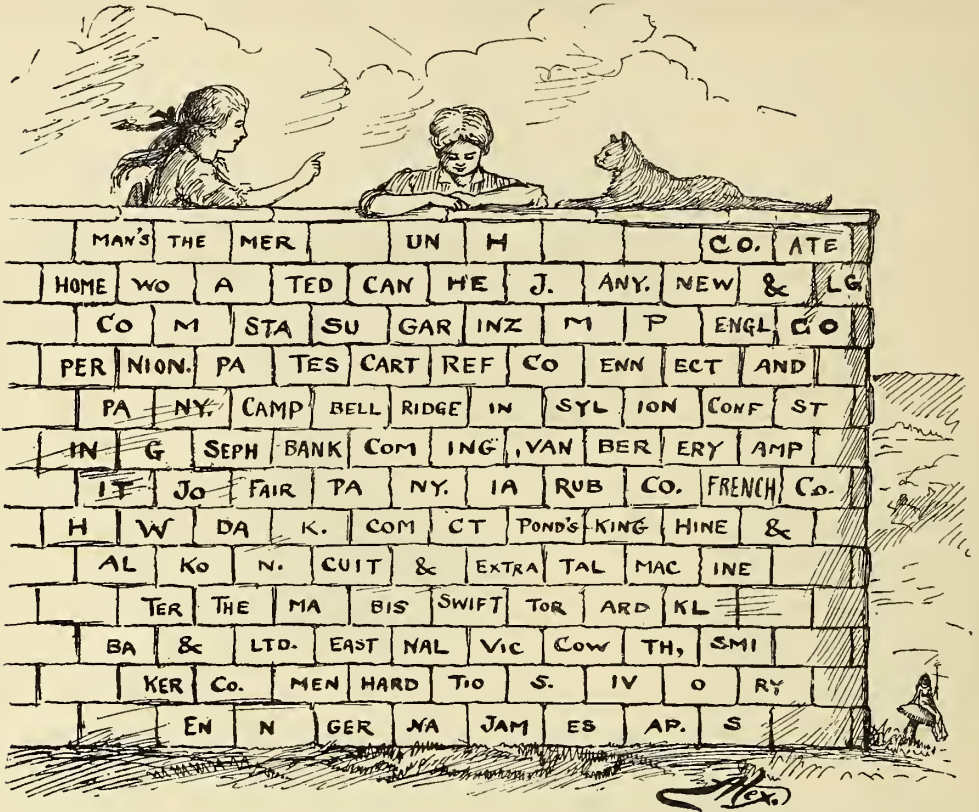 MAN'S THE MER UN H CO. ATE
HOME WO A TED CAN HE J. ANY. NEW & LG
CO M STA SU GAR INZ M P ENGL CO
PER NION. PA TES CART REF CO ENN ECT AND
PA NY. CAMP BELL RIDGE IN SYL ION CONF ST
IN G SEPH BANK COM ING , VAN BER ERY AMP
IT JO FAIR PA NY. IA RUB CO. FRENCH CO.
H W DA K. COM CT POND'S KING HINE &
AL KO N. CUIT & EXTRA TAL MAC INE
TER THE MA BIS SWIFT TOR ARD KL
BA & LTD. EAST NAL VIC COW TH, SMI
KER CO. MEN HARD TIO S. IV O RY
EN N GER NA JAM ES AP. S
Mex.